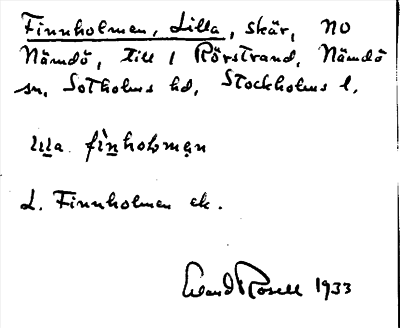 Finnholmen, Lilla, skär, NO
Nämdö, till 1 Rörstrand, Nämdö
sn, Sotholms hd, Stockholms l.
lìlla fìnhołmən
L. Finnholmen ek.
Erland Rosell 1933